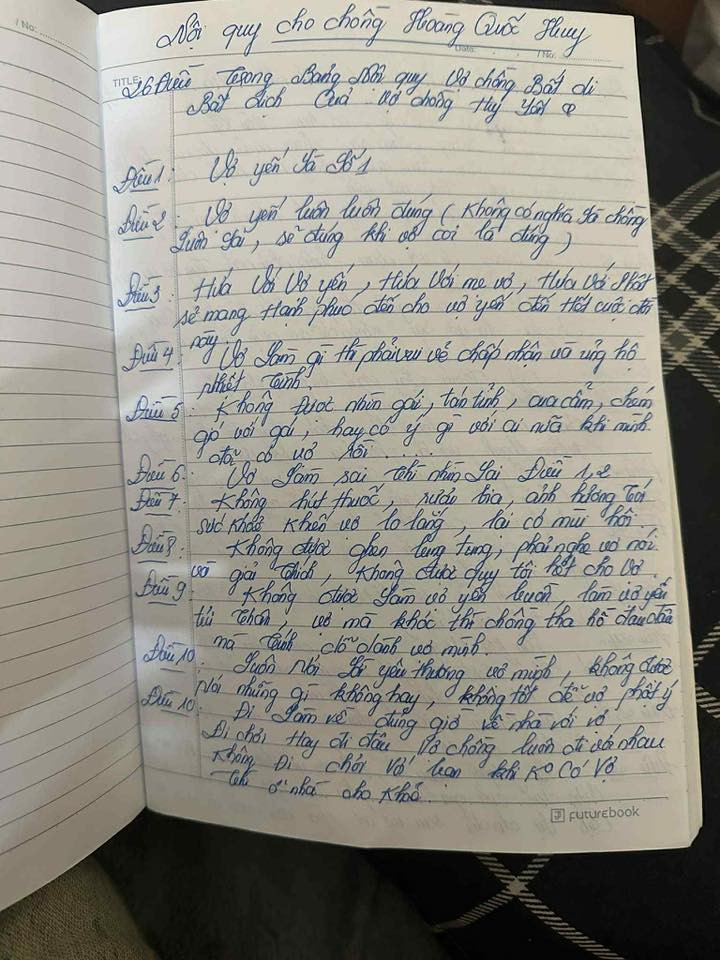 / No:
Nội quy cho chồng Hoàng Quốc Huy
Date: / No:
TITLE
26 Điều trong Bảng Nội quy Vợ chồng Bất di
Bất dịch Của vợ chồng Huy Yến
Điều 1: Vợ yến là Số 1
Điều 2: Vợ yến luôn luôn đúng ( Không có nghĩa là chồng
luôn sai, sẽ đúng khi vợ coi là đúng )
Điều 3: Hứa Với Vợ yến, Hứa Với mẹ vợ, Hứa Với Phật
sẽ mang Hạnh phúc đến cho vợ yến đến Hết cuộc đời
này.
Điều 4: Vợ làm gì thì phải vui vẻ chấp nhận và ủng hộ
nhiệt tình.
Điều 5: Không được nhìn gái, tán tỉnh, cưa cẩm, chém
gió với gái, hay có ý gì với ai nữa khi mình
đã có vợ rồi ....
Điều 6: Vợ làm sai thì nhìn lại Điều 1, 2
Điều 7: Không hút thuốc, rượu bia, ảnh hưởng tới
sức khoẻ khiến vợ lo lắng, lại có mùi hôi.
Điều 8: Không được ghen lung tung, phải nghe vợ nói
và giải thích, Không được quy tội hết cho Vợ.
Điều 9: Không được làm vợ yến buồn, làm vợ yến
tủi thân, vợ mà khóc thì chồng tha hồ đau đầu
mà tính dỗ dành vợ mình.
Điều 10: Luôn nói lời yêu thương vợ mình, không được
nói những gì không hay, không tốt để vợ phật ý
Điều 10: Đi làm về đúng giờ về nhà với vợ
Đi chơi Hay đi đâu Vợ chồng luôn đi với nhau
Không Đi chơi Với bạn khi Ko Có Vợ
thì ở nhà cho Khoẻ.
FUTUREBOOK